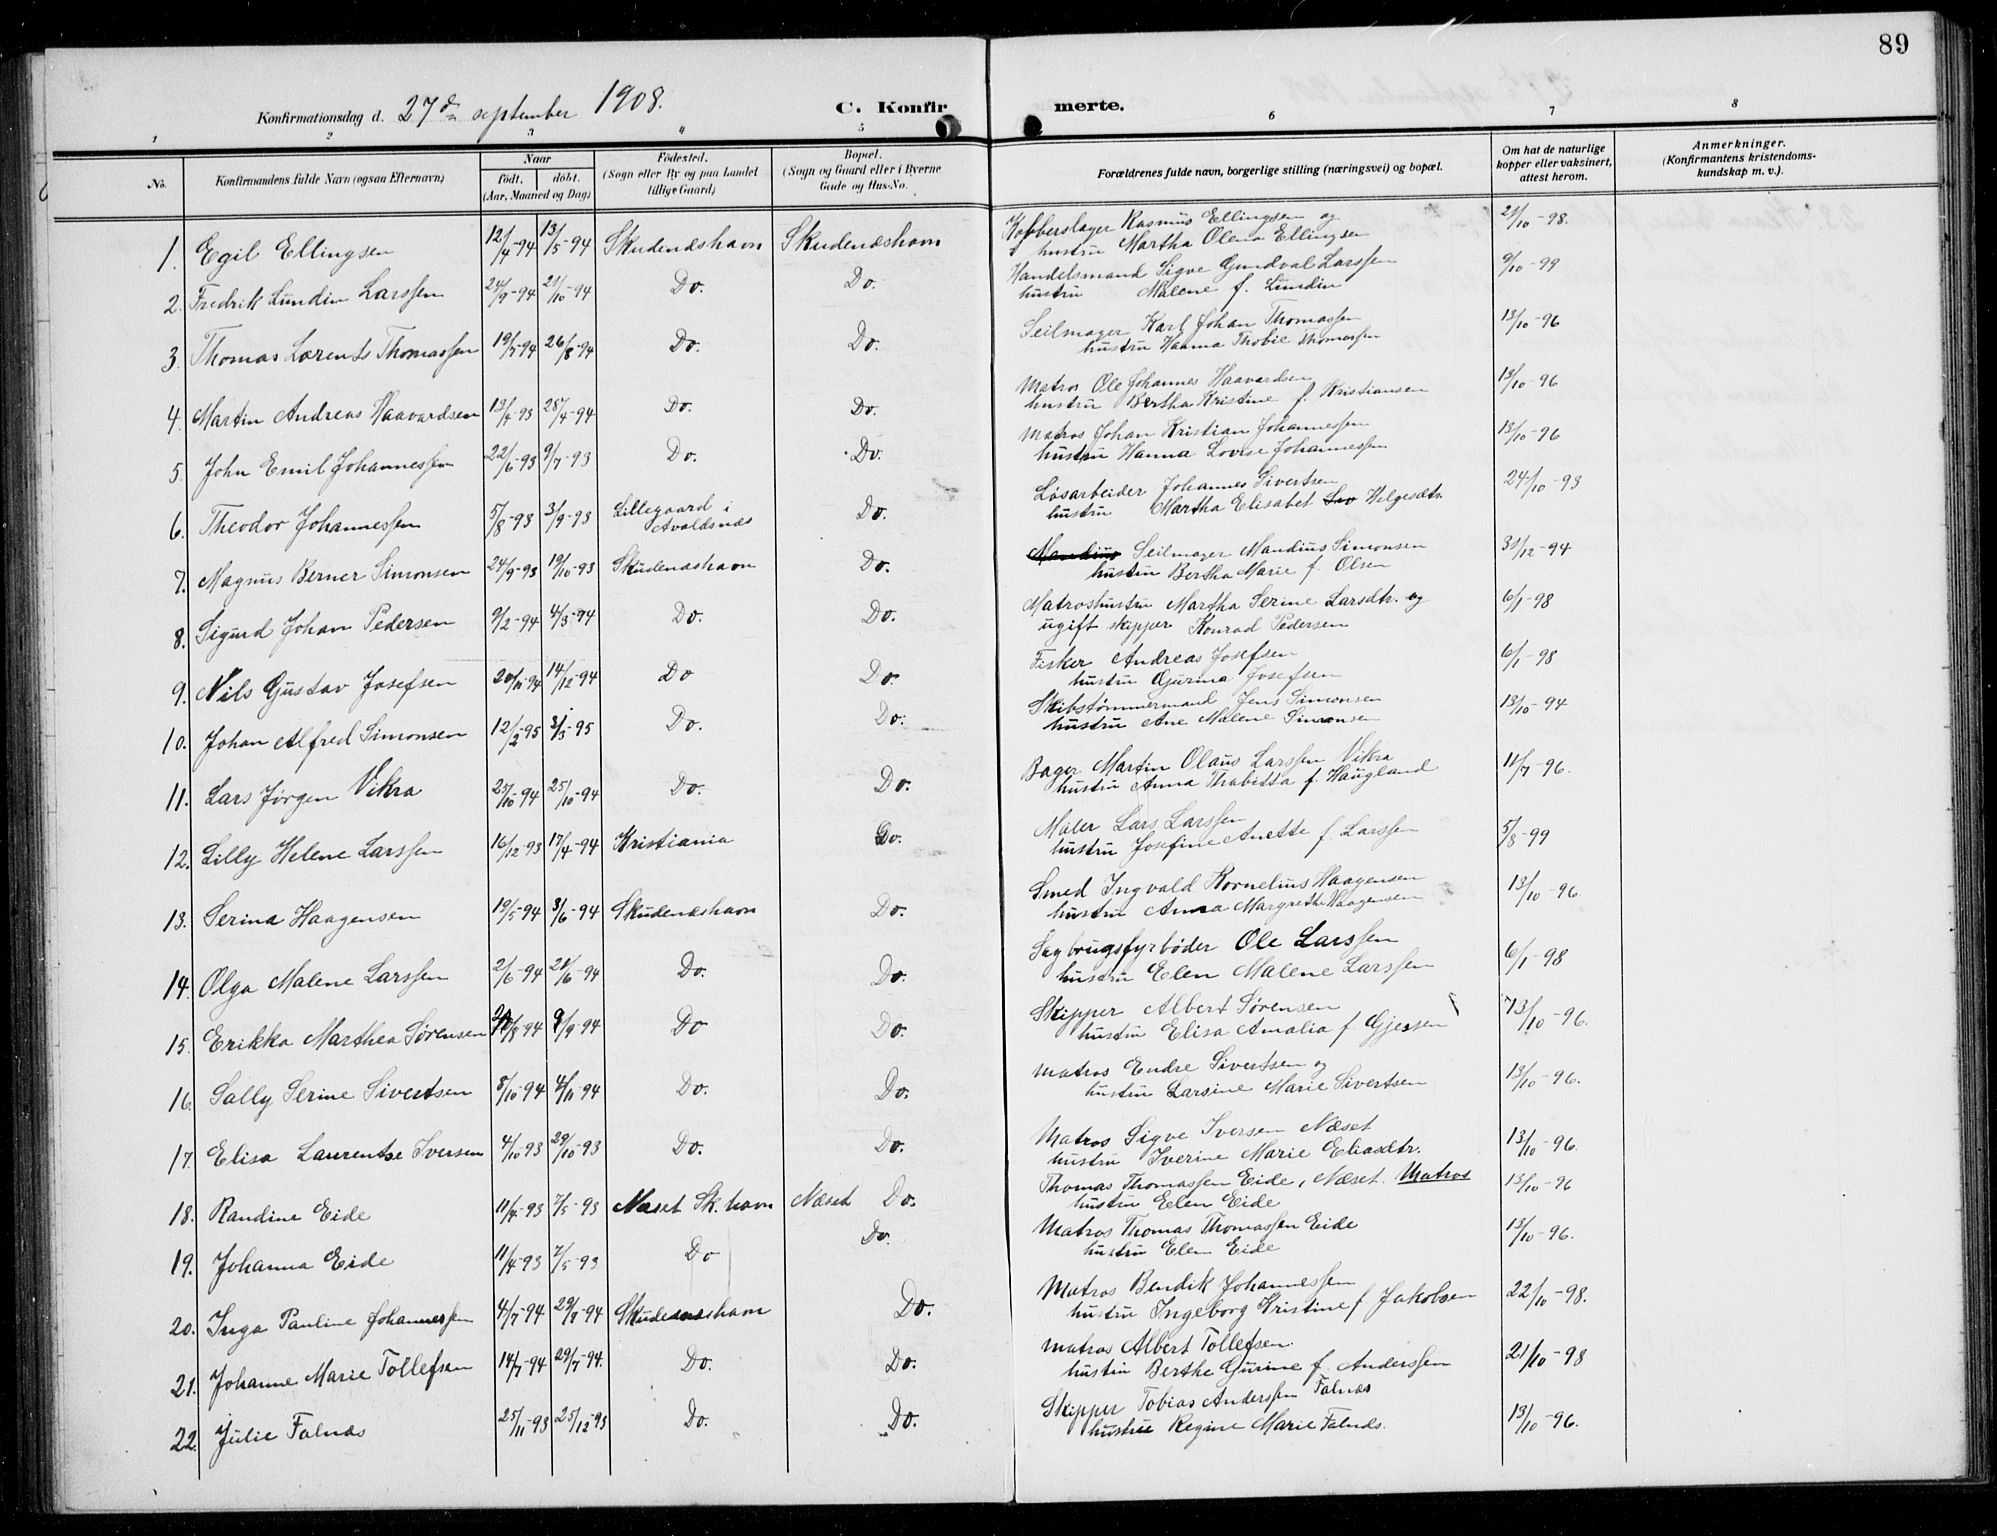 89
Konfirmationsdag d. 27de september 1908.
C. Konfirmerte.
1 2 3 4 5 6 7 8
No. Konfirmandens fulde Navn (ogsaa Efternavn) Naar født. døbt. (Aar, Maaned og Dag) Fødested. (Sogn eller By og paa Landet tillige Gaard) Bopæl. (Sogn og Gaard eller i Byerne Gade og Hus-No. Forældrenes fulde navn, borgerlige stilling (næringsvei) og bopæl. Om hat de naturlige kopper eller vaksinert, attest herom. Anmerkninger. (Konfirmantens kristendoms-kundskap m. v.).
1. Egil Ellingsen 12/4-94 13/5-94 Skudenæshavn Skudenæshavn Kobberslager Rasmus Ellingsen og 21/10-98.
hustru Martha Olena Ellingsen
2. Fredrik Lundin Larssen 24/9-94 21/10-94 Do. Do. Handelsmand Sigve Gundval Larssen 9/10-99
hustru Malene f. Lundin
3. Thomas Lorents Thomassen 19/7-94 26/8-94 Do. Do. Seilmager Karl Johan Thomassen 13/10-96
hustru Hanna Thobie Thomassen
4. Martin Andreas Haavardsen 28/4-94 Do. Do. Matros Ole Johannes Haavardsen 13/10-96
hustru Bertha Kristine f. Kristiansen
5. John Emil Johannessen 22/6-93 9/7-93 Do. Do. Matros Johan Kristian Johannessen 13/10-96
hustru Hanna Lovise Johannessen
6. Theodor Johannessen 5/8-93 3/9-93 Lillegaard i Avaldsnæs Do. Løsarbeider Johannes Sivertsen 24/10-93
hustru Martha Elisabet Helgesdtr.
7. Magnus Berner Simonsen 24/9-93 19/10-93 Skudenæshavn Do. Mandius Seilmager Mandius Simonsen 31/12-94
hustru Bertha Marie f. Olsen
8. Sigurd Johan Pedersen 9/2-94 4/3-94 Do. Do. Matroshustru Martha Serine Larsdtr. og 6/1-98
ugift skipper Konrad Pedersen
9. Nils Gustav Josefsen 20/11-94 14/12-94 Do Do. Fisker Andreas Josefsen 6/1-98
hustru Gurina Josefsen
10. Johan Alfred Simonsen 12/2-95 3/3-95 Do. Do. Skibstømmermand Jens Simonsen 13/10-94
hustru Ane Malene Simonsen
11. Lars Jørgen Vikra 23/10-94 25/10-94 Do. Do. Bager Martin Olaus Larssen Vikra 11/7-96.
hustru Anna Thabitta f. Haugland
12. Lilly Helene Larssen 16/12-93 17/4-94 Kristiania Do. Maler Lars Larssen 5/8-99
hustru Josefine Anette f. Larssen
13. Serina Haagensen 19/5-94 3/6-94 Skudenæshavn Do. Smed Ingvald Kornelius Haagensen 13/10-96
hustru Anna Margrethe Haagensen
14. Olga Malene Larssen 2/6-94 24/6-94 Do. Do. Sagbrugsfyrbøder Ole Larssen 6/1-98
hustru Elen Malene Larssen
15. Erikka Marthea Sørensen 9/9-94 Do Do. Skipper Albert Sørensen 13/10-96.
hustru Elisa Amalia f. Gjessen
16. Sally Serine Sivertsen 8/10-94 4/11-94 Do. Do. Matros Endre Sivertsen og 13/10-96.
hustru Larsine Marie Sivertsen
17. Elisa Laurentse Iversen 4/10-93 29/10-93 Do. Do. Matros Sigve Iversen Næset 13/10-96.
hustru Iverine Marie Eliasdtr.
18. Randine Eide 11/4-93 7/5-93 Næset Sk. havn Næset Do. Thomas Thomassen Eide, Næset. Matros 13/10-96
hustru Elen Eide
19. Johanna Eide 11/4-93 7/5-93 Do Do. Matros Thomas Thomassen Eide 13/10-96.
hustru Elen Eide
20. Inga Pauline Johannessen 4/7-94 29/7-94 Skudenæshavn Do. Matros Bendik Johannessen 22/10-98.
hustru Ingeborg Kristine f Jakobsen
21. Johanne Marie Tollefsen 14/7-94 29/7-94. Do. Do. Matros Albert Tollefsen. 21/10-98
hustru Berthe Gurine f. Anderssen
22. Julie Falnæs 25/11-93 25/12-93 Do. Do. Skipper Tobias Anderssen Falnæs 13/10-96.
hustru Regine Marie Falnæs.